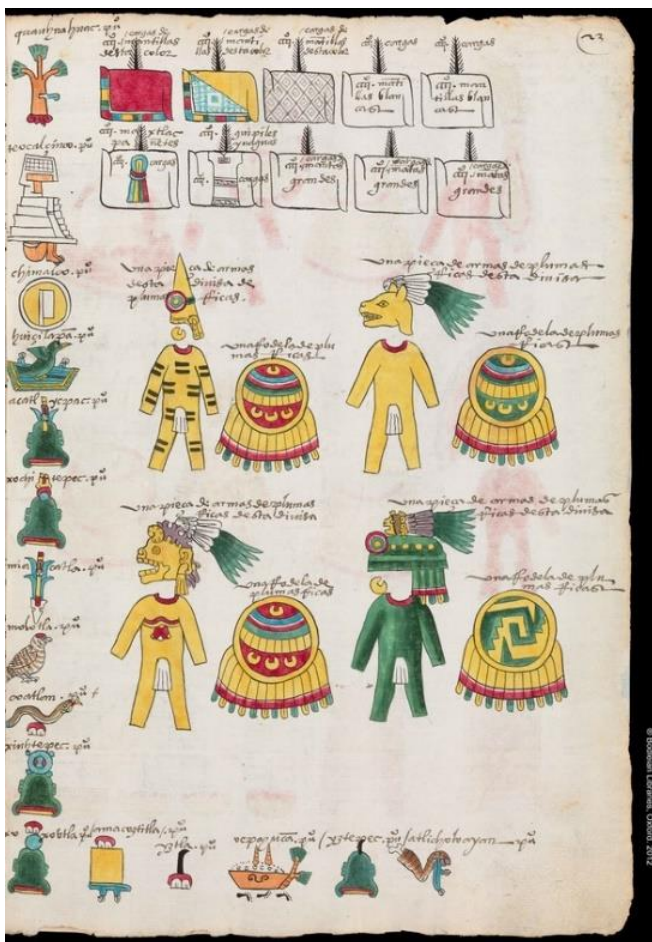 quauhnahuac. pu°
23
cargas de
mantillas
desta color
cargas de
manti
cargas de
mantillas
desta color
cargas
manti
llas blan
cas
cargas
man
tillas blan
cas
teocalçinco. pu°
cargas
cargas
cargas
mantas
grandes
mantas
grandes
cargas de
mantas
grandes
chimalco. pu°
una pieça de armas
desta divisa de
plumas ricas.
una pieça de armas de plumas
ricas desta divisa
huiçilapã. pu°
una rrodela de plu
mas rricas
una rrodela de plumas
rricas
acatl ycpac. pu°
xochi tepec. pu°
una pieça de armas de plumas
ricas desta divisa
una pieça de armas de plumas
ricas desta divisa
miacatla. pu°
una rrodela de
plumas rricas
una rrodela de plu
mas rricas
molotla. pu°
coatlan. pu°
xiuhtepec. pu°
xoxutla. pu°
amacoztitla. pu°
yztla. pu°
ocpayuca. pu°
yztepec. pu°
atlicholoayan. pu°
© Bodleian Libraries, Oxford, 2012